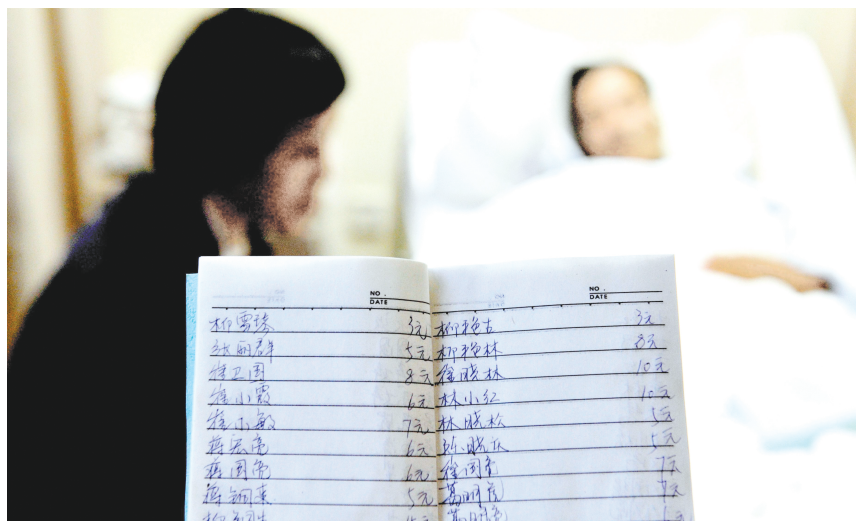 NO.
DATE
柳雪琴 3元
张丽群 5元
徐卫国 8元
徐小霞 6元
徐小敏 7元
蒋宏亮 6元
蒋国亮 6元
蒋 5元
NO.
DATE
柳艳古 3元
柳艳林 8元
徐晓林 10元
林小红 10元
林晓松 5元
晓 5元
徐国 7元
葛明 7元